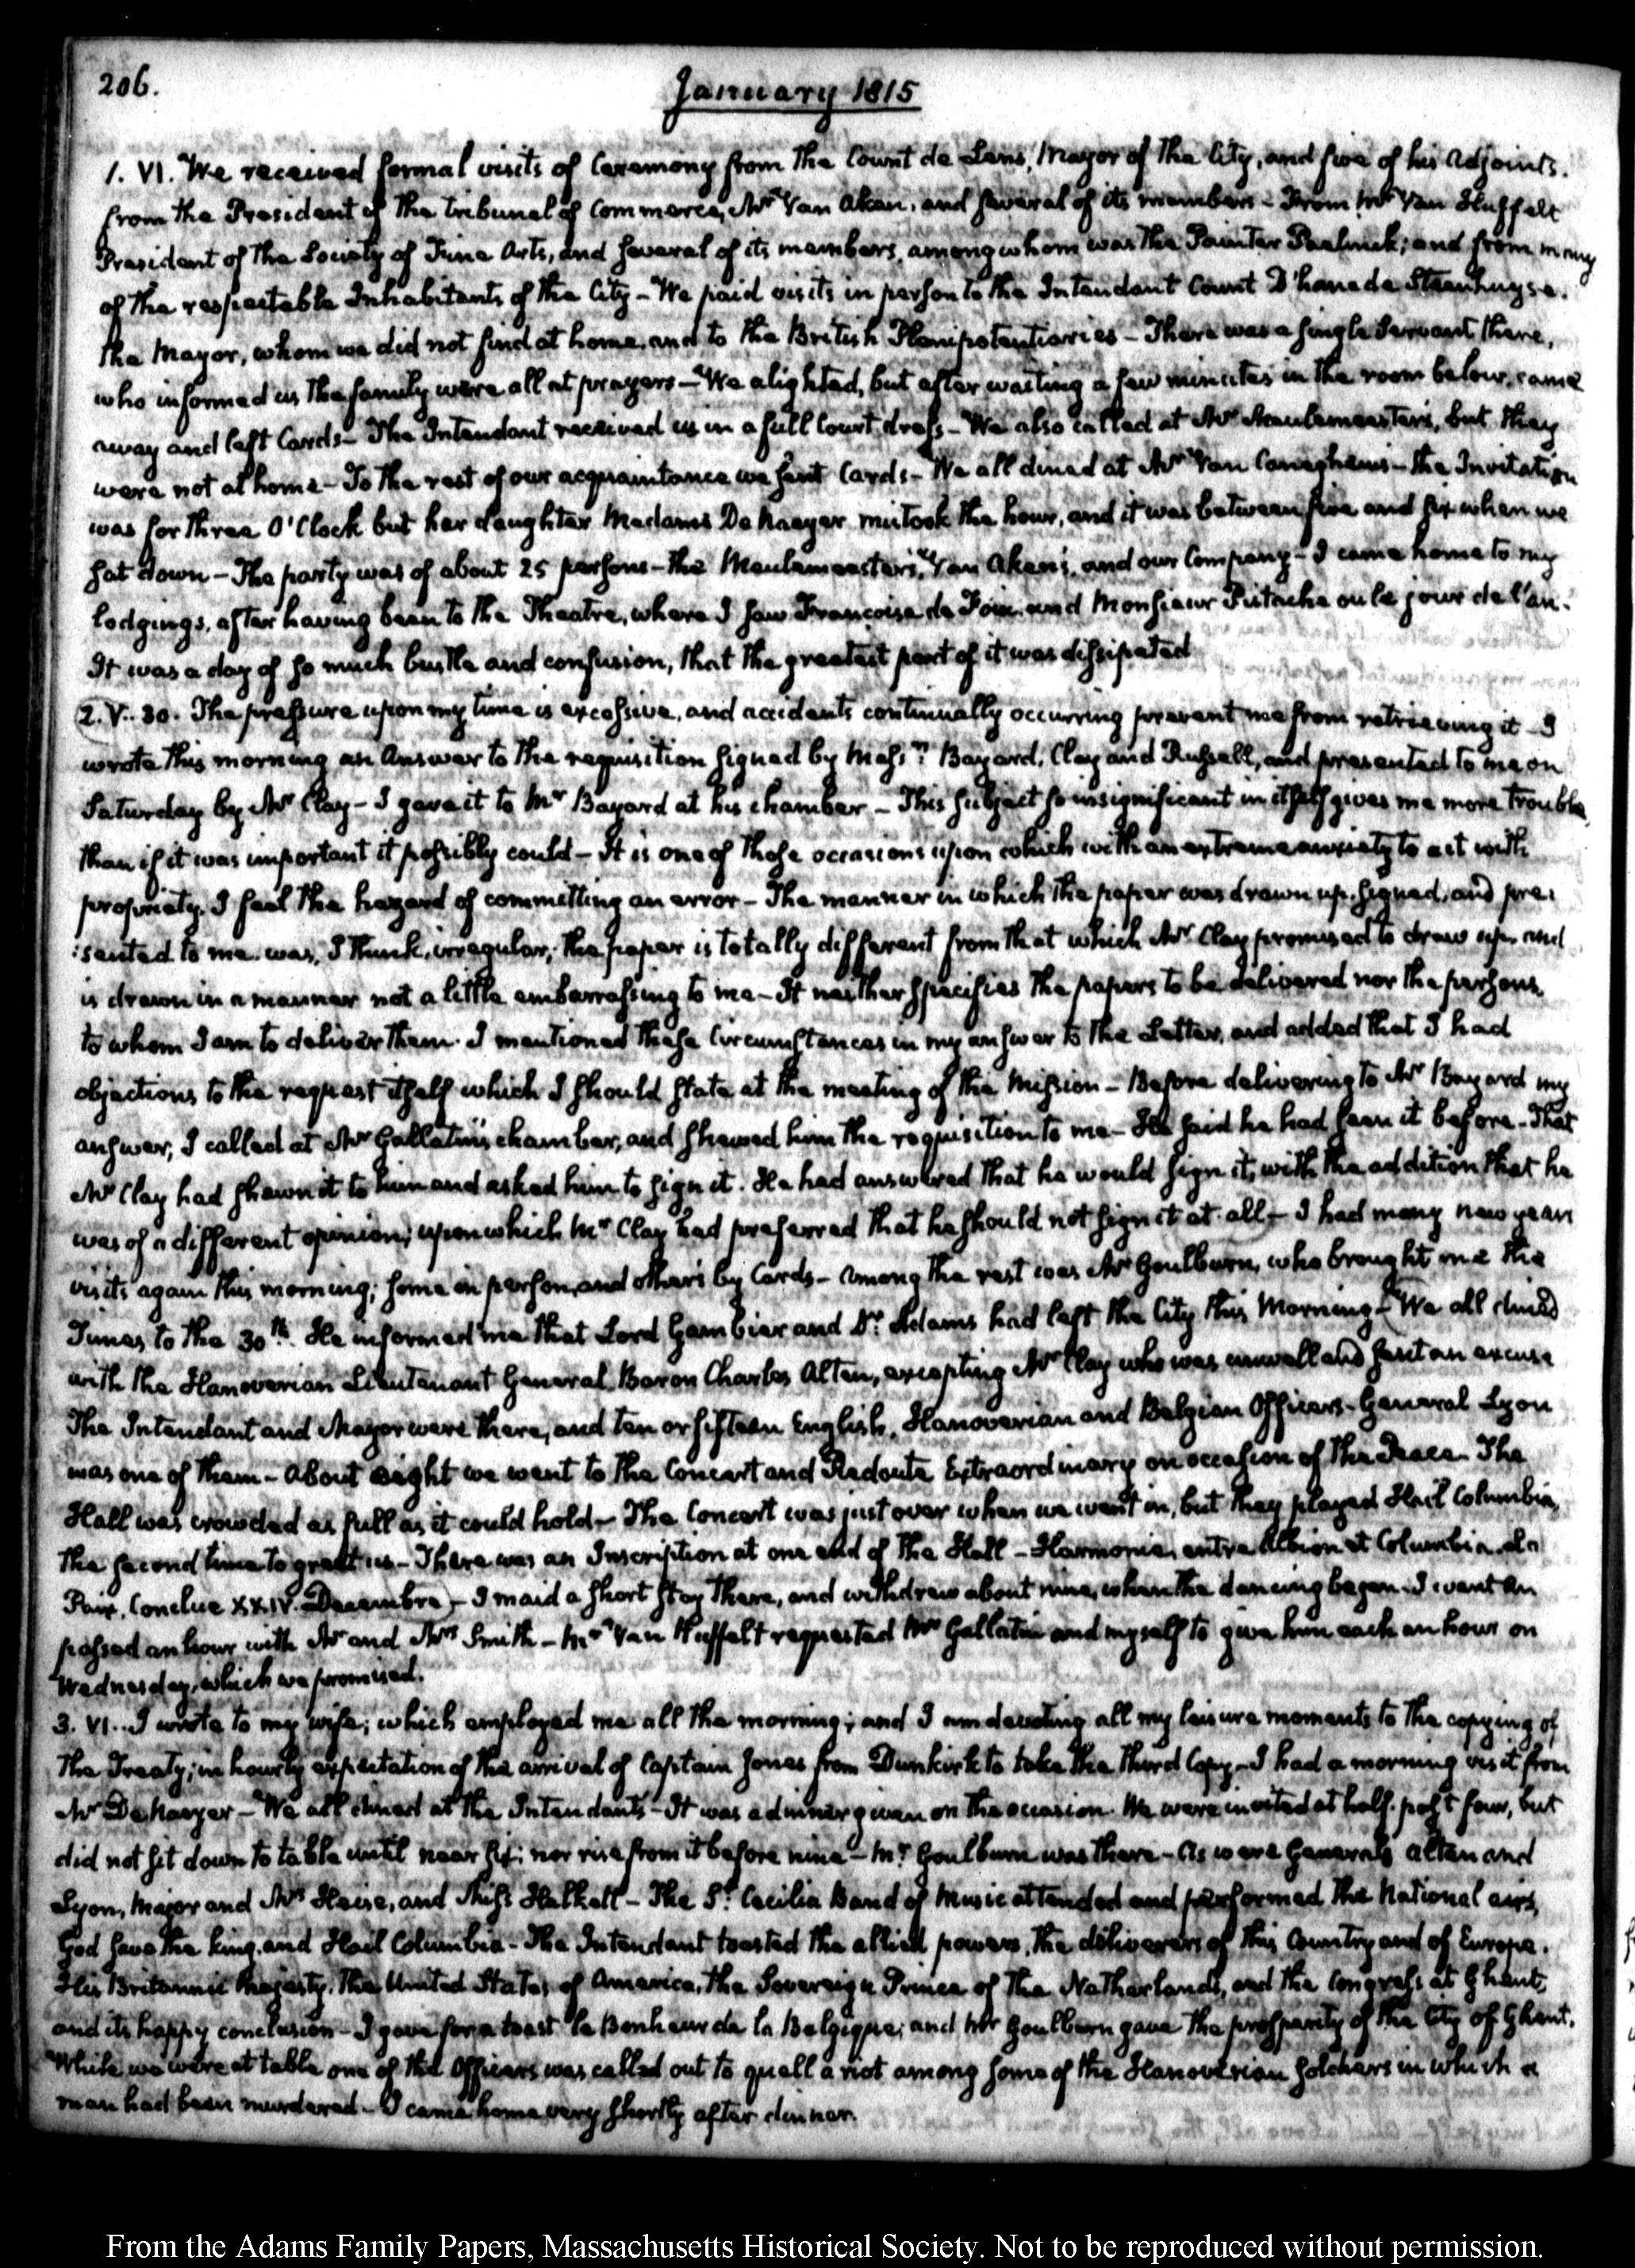 206.
January 1815
1. VI. We received formal visits of Ceremony from the Count de Lens, Mayor of the City, and five of his Adjoints.
from the President of the Tribunal of Commerce, Mr Van Aken, and several of its members - From Mr Van Huffel
President of the Society of Fine Arts, and several of its members, among whom was the Painter Paelinck; and from many
of the respectable Inhabitants of the City - We paid visits in person to the Intendant Count D'hane de Steenhuyse.
the Mayor, whom we did not find at home, and to the British Plenipotentiaries - There was a single Servant there,
who informed us the family were all at prayers - We alighted, but after waiting a few minutes in the room below, came
away and left Cards - The Intendant received us in a full Court dress - We also called at Mr Meulemeester's, but they
were not at home - To the rest of our acquaintance we sent Cards - We all dined at Mr Van Caneghem's - the Invitation
was for three O'Clock but her daughter Madame De Naeyer mistook the hour, and it was between five and six when we
sat down - The party was of about 25 persons - the Meulemeester's, Van Aken's, and our Company - I came home to my
lodgings, after having been to the Theatre, where I saw Francoise de Foix, and Monsieur Pistache ou le jour de l'an.
It was a day of so much bustle and confusion, that the greatest part of it was dissipated
2. V. 30. The pressure upon my time is excessive, and accidents continually occurring prevent me from retrieving it - I
wrote this morning an Answer to the requisition signed by Messrs Bayard, Clay and Russell, and presented to me on
Saturday by Mr Clay - I gave it to Mr Bayard at his chamber - This subject so insignificant in itself gives me more trouble
than if it was important it possibly could - It is one of those occasions upon which with an extreme anxiety to act with
propriety, I feel the hazard of committing an error - The manner in which the paper was drawn up, signed, and pre:
:sented to me, was, I think, irregular; the paper is totally different from that which Mr Clay promised to draw up, and
is drawn in a manner not a little embarrassing to me - It neither specifies the papers to be delivered nor the persons
to whom I am to deliver them. I mentioned these Circumstances in my answer to the Letter, and added that I had
objections to the request itself which I should state at the meeting of the Mission - Before delivering to Mr Bayard my
answer, I called at Mr Gallatin's chamber, and shewed him the requisition to me - He said he had seen it before - That
Mr Clay had shewn it to him and asked him to sign it. He had answered that he would sign it, with the addition that he
was of a different opinion; upon which Mr Clay had preferred that he should not sign it at all - I had many new years
visits again this morning; some in person, and others by Cards - Among the rest was Mr Goulburn, who brought me the
Times to the 30th. He informed me that Lord Gambier and Dr Adams had left the City this Morning - We all dined
with the Hanoverian Lieutenant General, Baron Charles Alten, excepting Mr Clay who was unwell and sent an excuse
The Intendant and Mayor were there, and ten or fifteen English, Hanoverian and Belgian Officers - General Lyon
was one of them - About eight we went to the Concert and Redoute Extraordinary on occasion of the Peace - The
Hall was crowded as full as it could hold - The Concert was just over when we went in, but they played Hail Columbia,
the second time to greet us - There was an Inscription at one end of the Hall - Harmonie, entre Albion et Columbia, la
Paix, Conclue XXIV. Decembre - I maid a short stay there, and withdrew about nine, when the dancing began. I went an
passed an hour with Mr and Mrs Smith - Mr Van Huffelt requested Mr Gallatin and myself to give him each an hour on
Wednesday, which we promised.
3. VI. I wrote to my wife; which employed me all the morning; and I am devoting all my leisure moments to the copying of
the Treaty; in hourly expectation of the arrival of Captain Jones from Dunkirk to take the third Copy - I had a morning visit from
Mr De Naeyer - We all dined at the Intendants - It was a dinner given on the occasion. We were invited at half past four, but
did not sit down to table until near six; nor rise from it before nine - Mr Goulburn was there - As were Generals Alten and
Lyon, Major and Mrs Heise, and Miss Halkett - The St Cecilia Band of Music attended and performed the National airs,
God save the king, and Hail Columbia - The Intendant toasted the allied powers, the deliverers of this Country and of Europe.
His Britannic Majesty, the United States of America, the Sovereign Prince of the Netherlands, and the Congress at Ghent,
and its happy conclusion - I gave for a toast le Bonheur de la Belgique; and Mr Goulburn gave the prosperity of the City of Ghent.
While we were at table one of the Officers was called out to quell a riot among some of the Hanoverian soldiers in which a
man had been murdered - I came home very shortly after dinner.
From the Adams Family Papers, Massachusetts Historical Society. Not to be reproduced without permission.